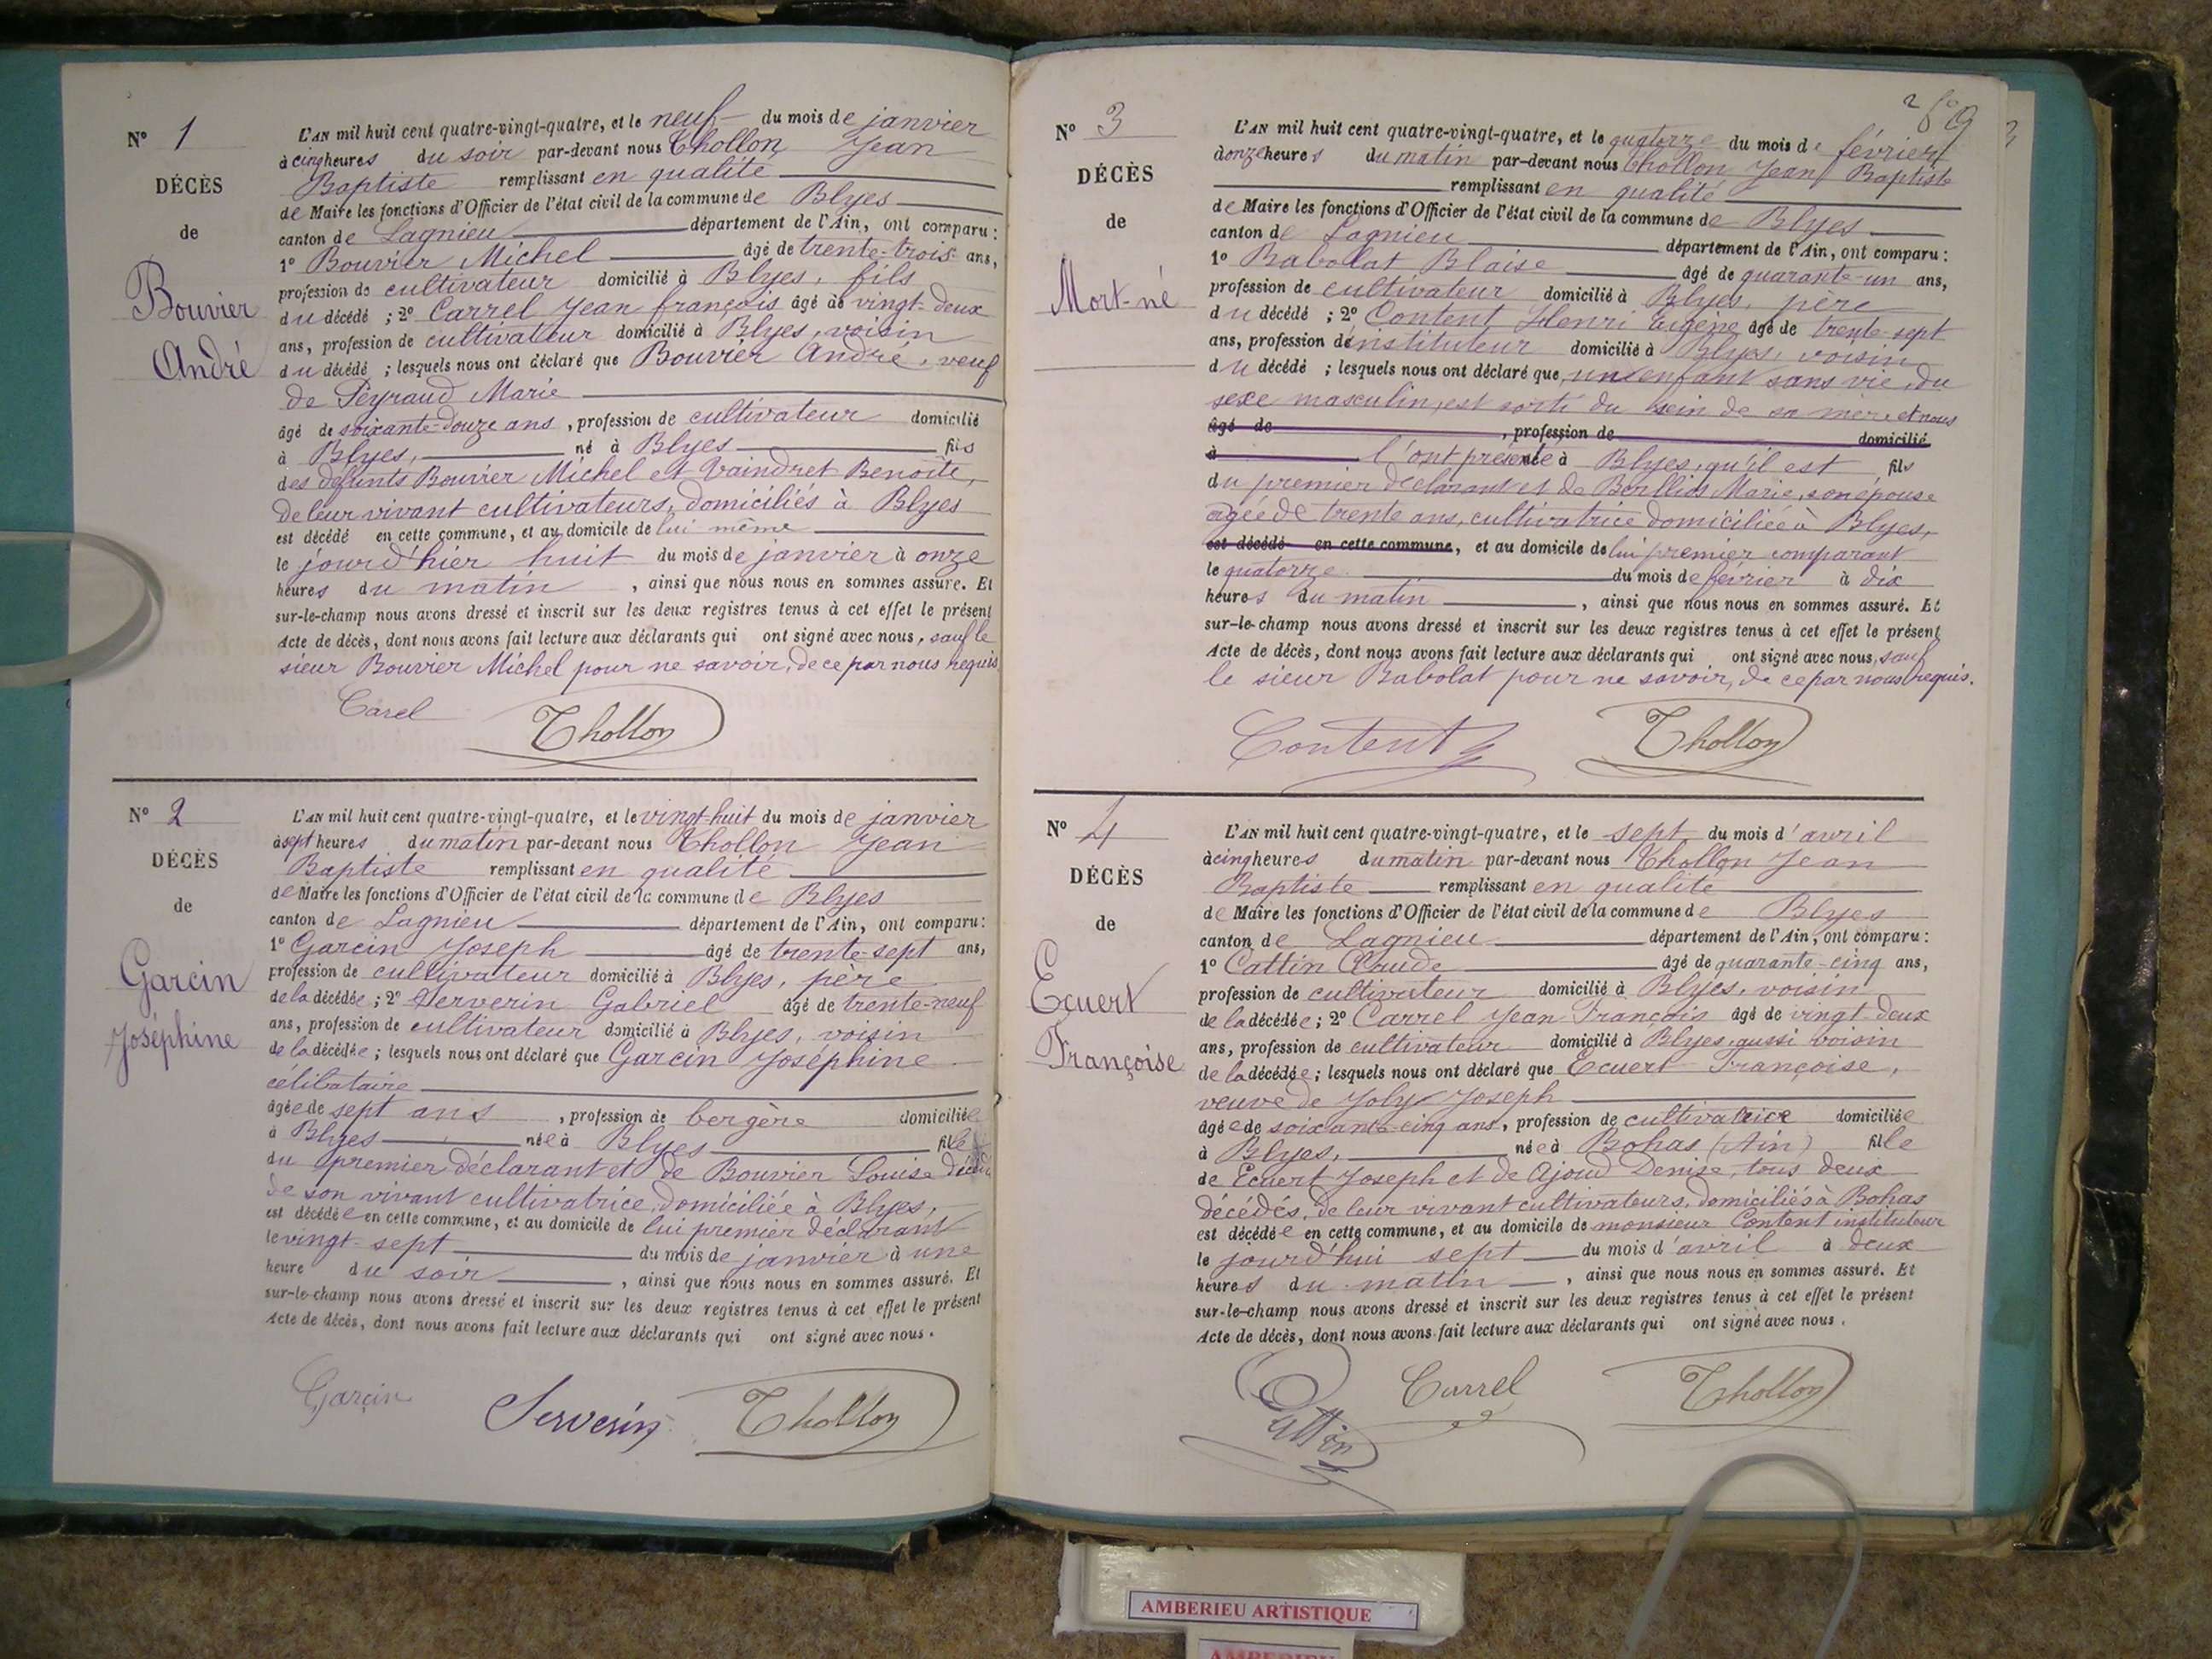 N° 1
DÉCÈS
de
Bouvier
André
L'AN mil huit cent quatre-vingt-quatre, et le neuf du mois de janvier
à cinq heures du soir par-devant nous Thollon Jean
Baptiste remplissant en qualité
de Maire les fonctions d'Officier de l'état civil de la commune de Blyes
canton de Lagnieu département de l'Ain, ont comparu :
1° Bouvier Michel âgé de trente-trois ans,
profession de cultivateur domicilié à Blyes, fils
du décédé ; 2° Carrel Jean françois âgé de vingt-deux
ans, profession de cultivateur domicilié à Blyes, voisin
du décédé ; lesquels nous ont déclaré que Bouvier André, veuf
de Peyraud Marie
âgé de soixante-douze ans, profession de cultivateur domicilié
à Blyes, né à Blyes fils
des défunts Bouvier Michel et Vaindret Benoîte,
de leur vivant cultivateurs, domiciliés à Blyes
est décédé en cette commune, et au domicile de lui même
le jour d'hier huit du mois de janvier à onze
heures du matin, ainsi que nous nous en sommes assuré. Et
sur-le-champ nous avons dressé et inscrit sur les deux registres tenus à cet effet le présent
Acte de décès, dont nous avons fait lecture aux déclarants qui ont signé avec nous, sauf le
sieur Bouvier Michel pour ne savoir, de ce par nous requis
Carel Thollon
N° 2
DÉCÈS
de
Garcin
Joséphine
L'AN mil huit cent quatre-vingt-quatre, et le vingt-huit du mois de janvier
à sept heures du matin par-devant nous Thollon Jean
Baptiste remplissant en qualité
de Maire les fonctions d'Officier de l'état civil de la commune de Blyes
canton de Lagnieu département de l'Ain, ont comparu :
1° Garcin Joseph âgé de trente-sept ans,
profession de cultivateur domicilié à Blyes, père
de la décédée ; 2° Serverin Gabriel âgé de trente-neuf
ans, profession de cultivateur domicilié à Blyes, voisin
de la décédée ; lesquels nous ont déclaré que Garcin Joséphine
célibataire
âgée de sept ans, profession de bergère domiciliée
à Blyes née à Blyes fille
du premier déclarant et de Bouvier Louise
de son vivant cultivatrice, domiciliée à Blyes,
est décédée en cette commune, et au domicile de lui premier déclarant
le vingt-sept du mois de janvier à une
heure du soir, ainsi que nous nous en sommes assuré. Et
sur-le-champ nous avons dressé et inscrit sur les deux registres tenus à cet effet le présent
Acte de décès, dont nous avons fait lecture aux déclarants qui ont signé avec nous.
Garçin Serverin Thollon
N° 3
DÉCÈS
de
Mort-né
L'AN mil huit cent quatre-vingt-quatre, et le quatorze du mois de février
à onze heures du matin par-devant nous Thollon Jean Baptiste
remplissant en qualité
de Maire les fonctions d'Officier de l'état civil de la commune de Blyes
canton de Lagnieu département de l'Ain, ont comparu :
1° Babolat Blaise âgé de quarante-un ans,
profession de cultivateur domicilié à Blyes, père
du décédé ; 2° Content Henri Eugène âgé de trente-sept
ans, profession d'instituteur domicilié à Blyes, voisin
du décédé ; lesquels nous ont déclaré que, un enfant sans vie, du
sexe masculin, est sorti du sein de sa mère et nous
âgé de , profession de domicilié
à l'ont présenté à Blyes, qu'il est fils
du premier déclarant et de Marie, son épouse
agée de trente ans, cultivatrice domiciliée à Blyes,
est décédé en cette commune, et au domicile de lui premier comparant
le quatorze du mois de février à dix
heures du matin, ainsi que nous nous en sommes assuré. Et
sur-le-champ nous avons dressé et inscrit sur les deux registres tenus à cet effet le présent
Acte de décès, dont nous avons fait lecture aux déclarants qui ont signé avec nous, sauf
le sieur Babolat pour ne savoir, de ce par nous requis.
Content Thollon
N° 4
DÉCÈS
de
Ecuert
Françoise
L'AN mil huit cent quatre-vingt-quatre, et le sept du mois d'avril
à cinq heures du matin par-devant nous Thollon Jean
Baptiste remplissant en qualité
de Maire les fonctions d'Officier de l'état civil de la commune de Blyes
canton de Lagnieu département de l'Ain, ont comparu :
1° Cattin Claude âgé de quarante-cinq ans,
profession de cultivateur domicilié à Blyes, voisin
de la décédée ; 2° Carrel Jean François âgé de vingt-deux
ans, profession de cultivateur domicilié à Blyes, aussi voisin
de la décédée ; lesquels nous ont déclaré que Ecuert Françoise,
veuve de Joly Joseph
âgée de soixante-cinq ans, profession de cultivatrice domiciliée
à Blyes, née à Bohas (Ain) fille
de Ecuert Joseph et de Ajoud Denise, tous deux
décédés, de leur vivant cultivateurs, domiciliés à Bohas
est décédée en cette commune, et au domicile de monsieur Content instituteur
le jour d'hui sept du mois d'avril à deux
heures du matin, ainsi que nous nous en sommes assuré. Et
sur-le-champ nous avons dressé et inscrit sur les deux registres tenus à cet effet le présent
Acte de décès, dont nous avons fait lecture aux déclarants qui ont signé avec nous.
Cattin Carrel Thollon
AMBERIEU ARTISTIQUE